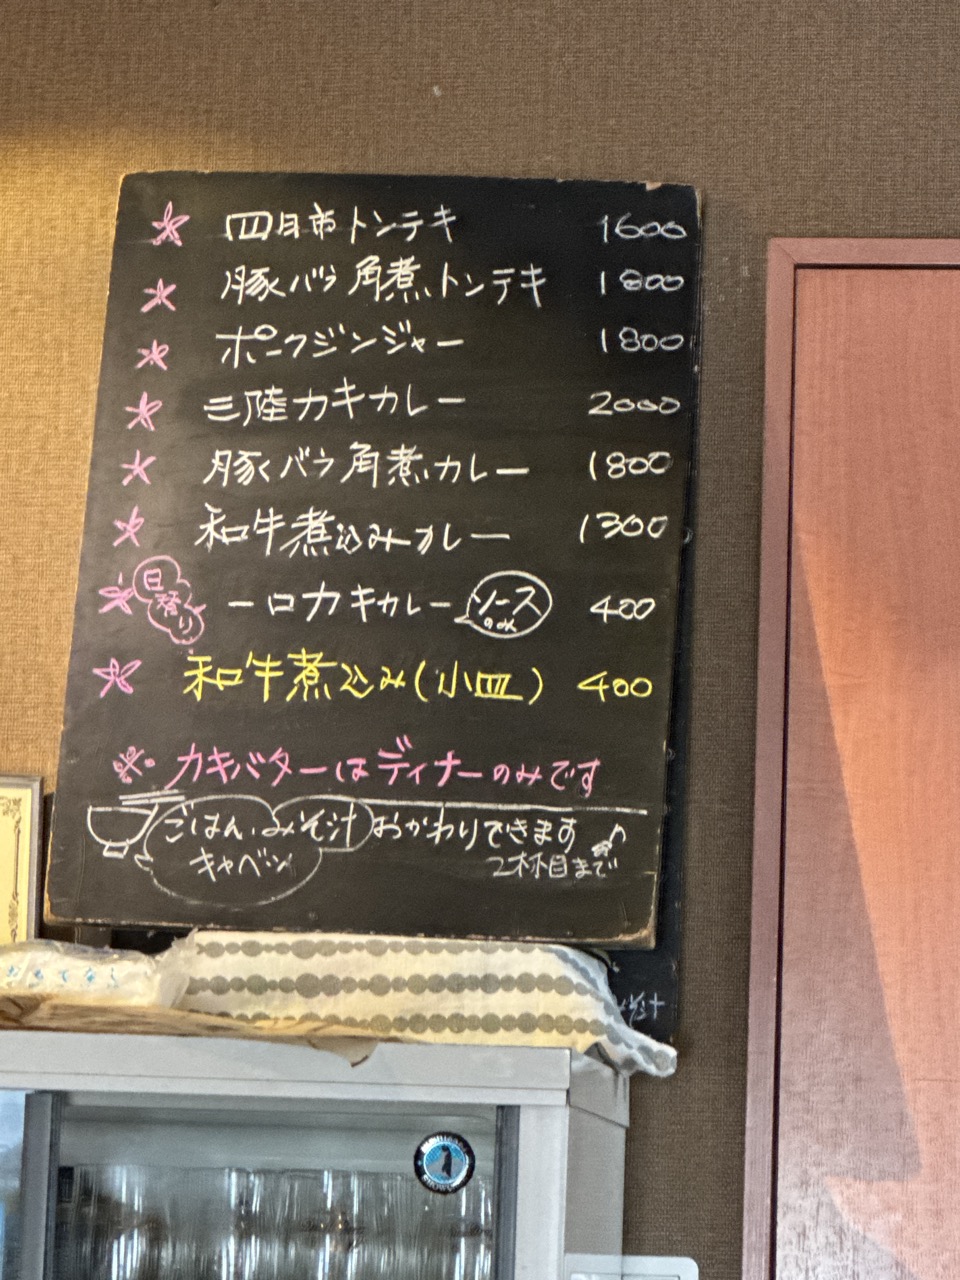 四日市トンテキ 1600
豚バラ角煮トンテキ 1800
ポークジンジャー 1800
三陸カキカレー 2000
豚バラ角煮カレー 1800
和牛煮込みカレー 1300
日替り 一口カキカレー ソースのみ 400
和牛煮込み(小皿) 400
※カキバターはディナーのみです
ごはん、みそ汁おかわりできます♪
キャベツ 2杯目まで
おもてなし